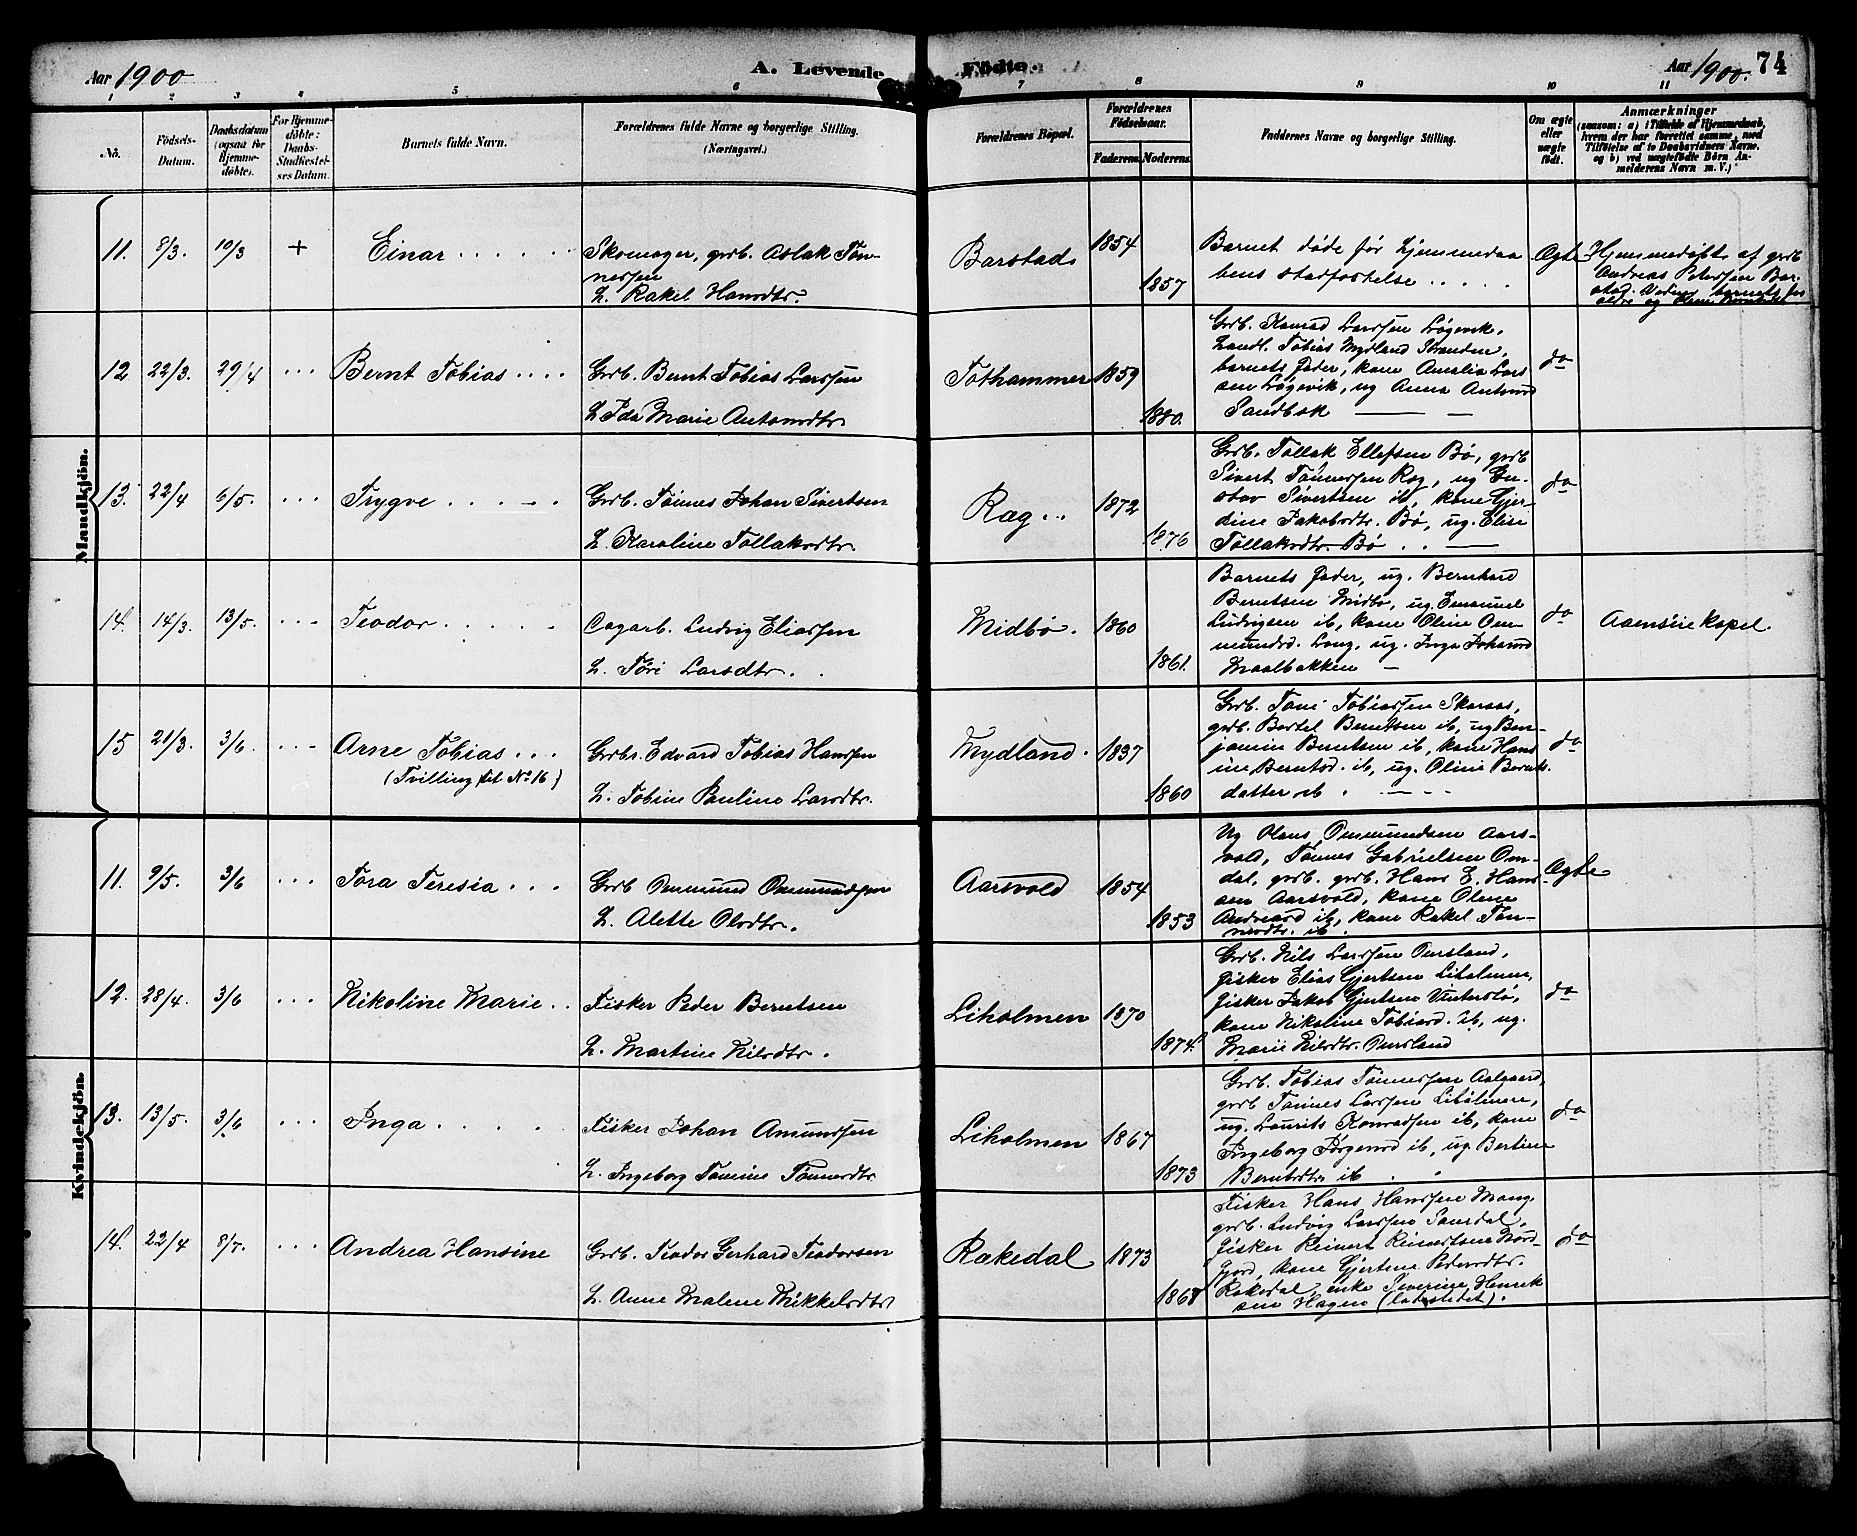 Aar 1900
A. Levende
Födte.
Aar 1900.
74
1 2 3 4 5 6 7 8 9 10 11
No.
Födsels-
Datum.
Daabsdatum
(ogsaa for
Hjemme-
döbte).
For Hjemme-
döbte:
Daabs-
Stadfæstel-
ses Datum.
Barnets fulde Navn.
Forældrenes fulde Navne og borgerlige Stilling.
(Næringsvei.)
Forældrenes Bopæl.
Forældrenes
Födselsaar.
Faderens.
Moderens.
Faddernes Navne og borgerlige Stilling.
Om ægte
eller
uægte
födt.
Anmærkninger
(saasom: a) i Tilfælde af Hjemmedaab,
hvem der har forrettet samme, med
Tilföielse af to Daabsvidners Navne,
og b) ved uægtefödte Börn An-
melderens Navn m. V.)
Mandkjön.
11. 8/3. 10/3 + Einar
Skomager, grb. Aslak Tøn-
nessen
& Rakel Hansdtr.
Barstad
1854
1857
Barnet døde før hjemmedaa
bens stadfæstelse
Ægte
Hjemmedøbt af grb
Andreas Petersen Bar-
stad. Vidner barnets for
12 22/3. 29/4 Bernt Tobias
Grb. Bernt Tobias Larssen
& Ida Marie Antonsdtr.
Tothammer
1859
1880.
Grb. Konrad Larssen Løgevik,
Landl. Tobias Mydland Stranden,
barnets fader, kone Amalia Lars
sen Løgevik, ug Anna Antonsd
Sandbæk
do
13. 22/4 6/5. Trygve
Grb. Tønnes Johan Sivertsen
& Karoline Tollaksdtr.
Ræg
1872
1876
Grb. Tollak Ellefsen Bø, grb
Sivert Tønnessen Ræg, ug Gu-
stav Sivertsen ib, kone Gjer-
dine Jakobsdtr. Bø, ug. Elise
Tollaksdtr. Bø
do
14. 14/3. 13/5. Teodor
Ludvig Eliassen
& Tøri Larsdtr.
Midbø.
1860
1861.
Barnets fader, ug. Bernhard
Berntsen Midbø, ug. Emanuel
Ludvigsen ib, kone Oline Om-
mundsd. Loug, ug. Inga Johansd
Maalbakken
do
Aaensire kapel.
15 21/3. 3/6. Arne Tobias
(Tvilling til No 16)
Grbr. Edvard Tobias Hanssen
& Tobine Pauline Larsdtr.
Mydland.
1837
1860
Grb. Toni Tobiassen Skaraas,
grb. Bertel Berntsen ib, ug Ben-
jamine Berntsen ib, kone Hans
ine Berntsd. ib, ug. Oline Bernts-
datter ib
do
Kvindekjön.
11. 9/5. 3/6 Tora Teresia
Grb Ommund Ommundsen
& Alette Olsdtr.
Aarsvold
1854
1853
Ug Olaus Ommundsen Aars-
vold, Tønnes Gabrielsen Om-
dal, grb. grb. Hans E. Hans
sen Aarsvold, kone Olene
Andreasd ib, kone Rakel Tøn-
nesdtr. ib.
Ægte
12. 28/4. 3/6 Nikoline Marie
Fisker Peder Berntsen
& Martine Nilsdtr.
Liholmen
1870
1874.
Grb. Nils Larssen Omsland,
fisker Elias Gjertsen Liholmen,
fisker Jakob Gjertsen Vinterstø,
kone Nikoline Tobiasd. ib, ug.
Marie Nilsdtr. Omsland
do
13. 13/5. 3/6 Inga
Fisker Johan Amundsen
& Ingeborg Tomine Tønnesdtr
Liholmen
1867
1873
Grb. Tobias Tønnessen Aalgaard,
grb Tønnes Larssen Liholmen,
ug. Laurits Konradsen ib, kone
Ingeborg Jørgensd ib, ug. Bertine
Berntsdtr ib
do
14. 22/4 8/7. Andrea Hansine
Grb. Teodor Gerhard Teodorsen
& Anne Malene Mikkelsdtr
Rakedal
1873
1867
Fisker Hans Hanssen Mong,
grb. Ludvig Larssen
fisker Reinert Reinertsen Nord-
fjord, kone Gjertine Pedersdtr.
Rakedal, enke Severine Henrik
sen Hagen (ladestedet).
do